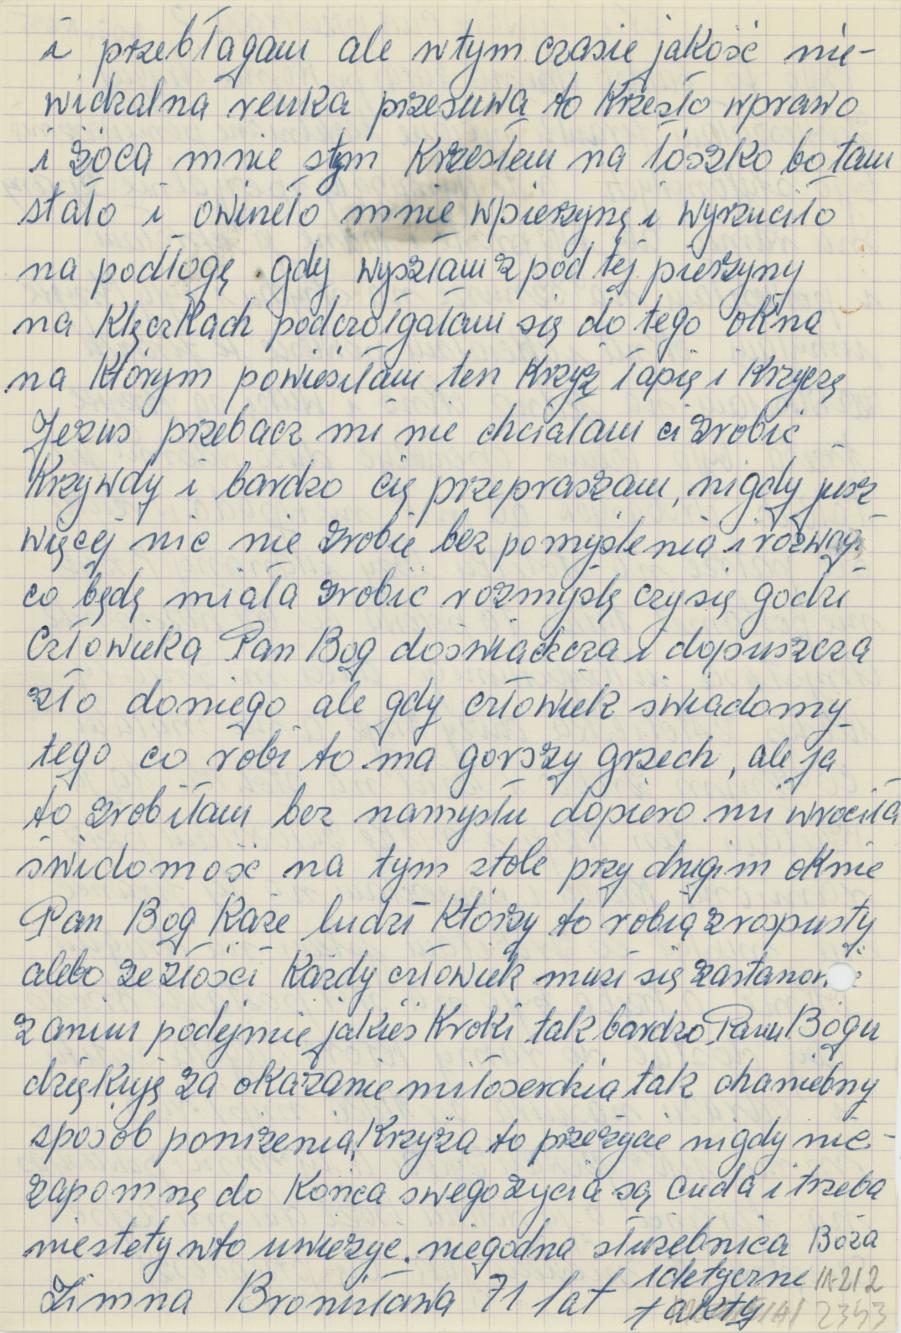 i przebłagam ale wtym czasie jakość nie-
widzalna renka przesuwa to krzesło wprawo
i żóca mnie stym krzesłem na łószko bo tam
stało i owineło mnie wpierzynę i wyrzuciło
na podłogę. gdy wyszłam z pod tej pierzyny
na klęczkach podczołgałam się do tego okna
na którym powiesiłam ten krzyż łapię i krzyczę
Jezus przebacz mi nie chciałam ci zrobić
krzywdy i bardzo cię przepraszam, nigdy jusz
więcej nic nie zrobie bez pomyślenia i rozwagi
co będę miała zrobić rozmyślę czy się godzi
Człowieka Pan Bog doświadcza i dopuszcza
zło doniego ale gdy człowiek świadomy
tego co robi to ma gorszy grzech, ale ja
to zrobiłam bez namysłu dopiero mi wrociła
świdomość na tym stole przy drugim oknie
Pan Bog każe ludzi którzy to robią zrospusty
alebo ze złości każdy człowiek musi się
zanim podejmie jakieś kroki tak bardzo Panu Bogu
dziękuję za okazanie miłoserdzia tak chaniebny
sposób poniżenia krzyża to przeżycie nigdy nie-
zapomnę do końca swego życia są cuda i trzeba
niestety wto uwieżyc. niegodna służebnica Boża
Zimna Bronisława 71 lat